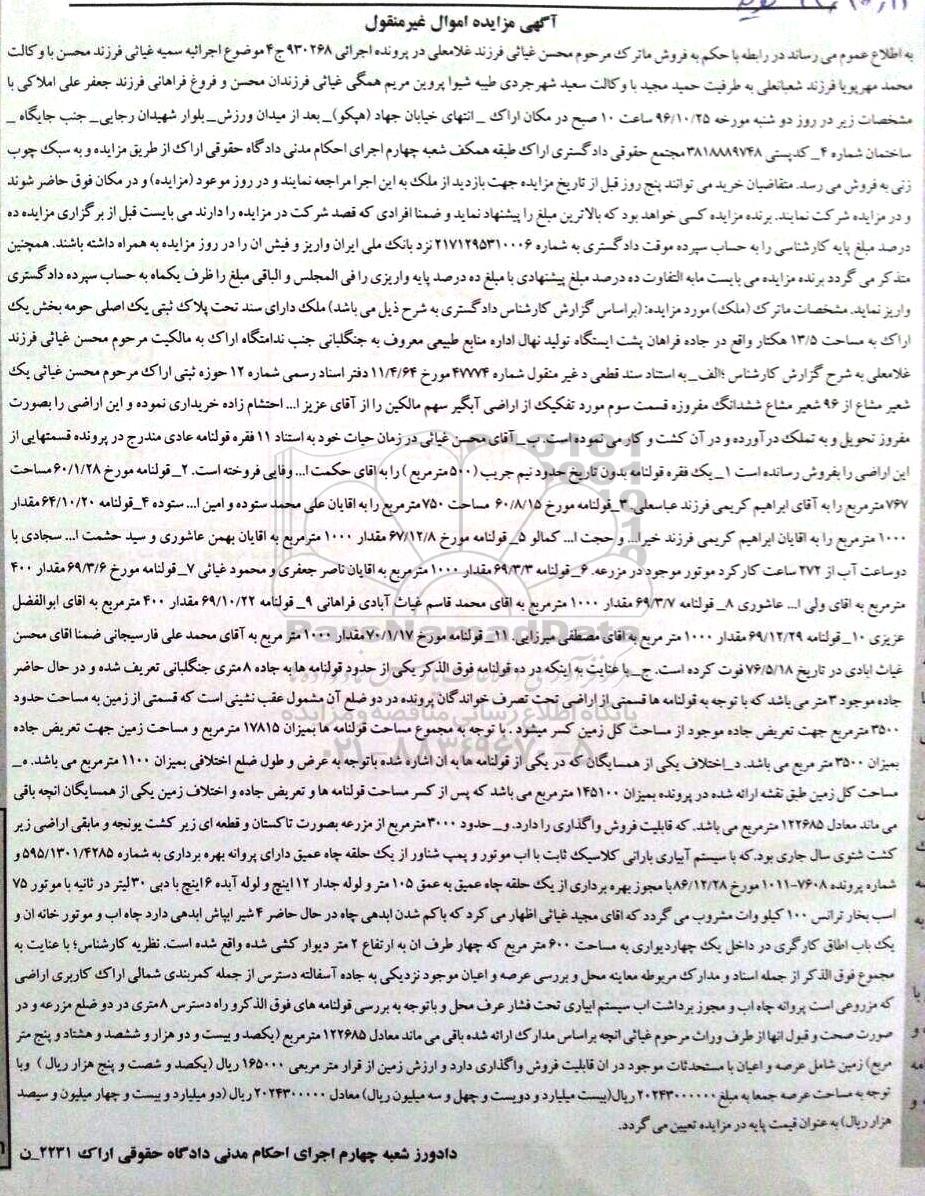 آگهی مزایده اموال غیرمنقول
به اطلاع عموم می رساند در رابطه با حکم به فروش ماترک مرحوم محسن غیاثی فرزند غلامعلی در پرونده اجرائی ۹۳۰۲۶۸ ج ۴ موضوع اجرائیه سمیه غیاثی فرزند محسن با وکالت
محمد مهرپویا فرزند شعبانعلی به طرفیت حمید مجید با وکالت سعید شهرجردی طیبه شیوا پروین مریم همگی غیاثی فرزندان محسن و فروغ فراهانی فرزند جعفر علی املاکی با
مشخصات زیر در روز دو شنبه مورخه ۹۶/۱۰/۲۵ ساعت ۱۰ صبح در مکان اراک _ انتهای خیابان جهاد (هپکو)_ بعد از میدان ورزش_ بلوار شهیدان رجایی_ جنب جایگاه _
ساختمان شماره ۴_ کدپستی ۳۸۱۸۸۸۹۷۴۸ مجتمع حقوقی دادگستری اراک طبقه همکف شعبه چهارم اجرای احکام مدنی دادگاه حقوقی اراک از طریق مزایده و به سبک چوب
زنی به فروش می رسد. متقاضیان خرید می توانند پنج روز قبل از تاریخ مزایده جهت بازدید از ملک به این اجرا مراجعه نمایند و در روز موعود (مزایده) و در مکان فوق حاضر شوند
و در مزایده شرکت نمایند. برنده مزایده کسی خواهد بود که بالاترین مبلغ را پیشنهاد نماید و ضمنا افرادی که قصد شرکت در مزایده را دارند می بایست قبل از برگزاری مزایده ده
درصد مبلغ پایه کارشناسی را به حساب سپرده موقت دادگستری به شماره ۲۱۷۱۲۹۵۳۱۰۰۰۶ نزد بانک ملی ایران واریز و فیش ان را در روز مزایده به همراه داشته باشند. همچنین
متذکر می گردد برنده مزایده می بایست مابه التفاوت ده درصد مبلغ پیشنهادی با مبلغ ده درصد پایه واریزی را فی المجلس و الباقی مبلغ را ظرف یکماه به حساب سپرده دادگستری
واریز نماید. مشخصات ماترک (ملک) مورد مزایده: (براساس گزارش کارشناس دادگستری به شرح ذیل می باشد) ملک دارای سند تحت پلاک ثبتی یک اصلی حومه بخش یک
اراک به مساحت ۱۳/۵ هکتار واقع در جاده فراهان پشت ایستگاه تولید نهال اداره منابع طبیعی معروف به جنگلبانی جنب ندامتگاه اراک به مالکیت مرحوم محسن غیاثی فرزند
غلامعلی به شرح گزارش کارشناس ؛الف_ به استناد سند قطعی د غیر منقول شماره ۴۷۷۷۴ مورخ ۱۱/۴/۶۴ دفتر اسناد رسمی شماره ۱۲ حوزه ثبتی اراک مرحوم محسن غیاثی یک
شعیر مشاع از ۹۶ شعیر مشاع ششدانگ مفروزه قسمت سوم مورد تفکیک از اراضی آبگیر سهم مالکین را از آقای عزیز ا... احتشام زاده خریداری نموده و این اراضی را بصورت
مفروز تحویل و به تملک درآورده و در آن کشت و کار می نموده است. ب_ آقای محسن غیاثی در زمان حیات خود به استناد ۱۱ فقره قولنامه عادی مندرج در پرونده قسمتهایی از
این اراضی را بفروش رسانده است ۱_ یک فقره قولنامه بدون تاریخ حدود نیم جریب (۵۰۰ مترمربع ) را به اقای حکمت ا... وفایی فروخته است. ۲_ قولنامه مورخ ۶۰/۱/۲۸ مساحت
۷۶۷ مترمربع را به آقای ابراهیم کریمی فرزند عباسعلی. ۳_ قولنامه مورخ ۶۰/۸/۱۵ مساحت ۷۵۰ مترمربع را به اقایان علی محمد ستوده و امین ا... ستوده ۴_ قولنامه ۶۴/۱۰/۲۰ مقدار
۱۰۰۰ مترمربع را به اقایان ابراهیم کریمی فرزند خیرا... و حجت ا... کمالو ۵_ قولنامه مورخ ۶۷/۱۲/۸ مقدار ۱۰۰۰ مترمربع به اقایان بهمن عاشوری و سید حشمت ا... سجادی با
دوساعت آب از ۲۷۲ ساعت کارکرد موتور موجود در مزرعه. ۶_ قولنامه ۶۹/۳/۳ مقدار ۱۰۰۰ مترمربع به اقایان ناصر جعفری و محمود غیاثی ۷_ قولنامه مورخ ۶۹/۳/۶ مقدار ۴۰۰
مترمربع به اقای ولی ا... عاشوری ۸_ قولنامه ۶۹/۳/۷ مقدار ۱۰۰۰ مترمربع به اقای محمد قاسم غیاث آبادی فراهانی ۹_ قولنامه ۶۹/۱۰/۲۲ مقدار ۴۰۰ مترمربع به اقای ابوالفضل
عزیزی ۱۰_ قولنامه ۶۹/۱۲/۲۹ مقدار ۱۰۰۰ متر مربع به اقای مصطفی میرزایی. ۱۱_ قولنامه مورخ ۷۰/۱/۱۷ مقدار ۱۰۰۰ متر مربع به آقای محمد علی فارسیجانی ضمنا اقای محسن
غیاث ابادی در تاریخ ۷۶/۵/۱۸ فوت کرده است. ج_ با عنایت به اینکه در ده قولنامه فوق الذکر یکی از حدود قولنامه ها به جاده ۸ متری جنگلبانی تعریف شده و در حال حاضر
جاده موجود ۳ متر می باشد که با توجه به قولنامه ها قسمتی از اراضی تحت تصرف خواندگان پرونده در دو ضلع آن مشمول عقب نشینی است که قسمتی از زمین به مساحت حدود
۳۵۰۰ مترمربع جهت تعریض جاده موجود از مساحت کل زمین کسر میشود . با توجه به مجموع مساحت قولنامه ها بمیزان ۱۷۸۱۵ مترمربع و مساحت زمین جهت تعریض جاده
بمیزان ۳۵۰۰ متر مربع می باشد. د_ اختلاف یکی از همسایگان که در یکی از قولنامه ها به ان اشاره شده باتوجه به عرض و طول ضلع اختلافی بمیزان ۱۱۰۰ مترمربع می باشد. ه_
مساحت کل زمین طبق نقشه ارائه شده در پرونده بمیزان ۱۴۵۱۰۰ مترمربع می باشد که پس از کسر مساحت قولنامه ها و تعریض جاده و اختلاف زمین یکی از همسایگان انچه باقی
می ماند معادل ۱۲۲۶۸۵ مترمربع می باشد. که قابلیت فروش واگذاری را دارد. و_ حدود ۳۰۰۰ مترمربع از مزرعه بصورت تاکستان و قطعه ای زیر کشت یونجه و مابقی اراضی زیر
کشت شتوی سال جاری بود.که با سیستم آبیاری بارانی کلاسیک ثابت با اب موتور و پمپ شناور از یک حلقه چاه عمیق دارای پروانه بهره برداری به شماره ۵۹۵/۱۳۰۱/۴۲۸۵ و
شماره پرونده ۷۶۰۸-۱۰۱۱ مورخ ۸۶/۱۲/۲۸ با مجوز بهره برداری از یک حلقه چاه عمیق به عمق ۱۰۵ متر و لوله جدار ۱۲ اینچ و لوله آبده ۶ اینچ با دبی ۳۰ لیتر در ثانیه با موتور ۷۵
اسب بخار ترانس ۱۰۰ کیلو وات مشروب می گردد که اقای مجید غیاثی اظهار می کرد که باکم شدن ابدهی چاه در حال حاضر ۴ شیر ابپاش ابدهی دارد چاه اب و موتور خانه ان و
یک باب اطاق کارگری در داخل یک چهاردیواری به مساحت ۶۰۰ متر مربع که چهار طرف ان به ارتفاع ۲ متر دیوار کشی شده واقع شده است. نظریه کارشناس؛ با عنایت به
مجموع فوق الذکر از جمله اسناد و مدارک مربوطه معاینه محل و بررسی عرصه و اعیان موجود نزدیکی به جاده آسفالته دسترس از جمله کمربندی شمالی اراک کاربری اراضی
که مزروعی است پروانه چاه اب و مجوز برداشت اب سیستم ابیاری تحت فشار عرف محل و باتوجه به بررسی قولنامه های فوق الذکرو راه دسترس ۸ متری در دو ضلع مزرعه و در
صورت صحت و قبول انها از طرف وراث مرحوم غیاثی انچه براساس مدارک ارائه شده باقی می ماند معادل ۱۲۲۶۸۵ مترمربع (یکصد و بیست و دو هزار و ششصد و هشتاد و پنج متر
مربع) زمین شامل عرصه و اعیان با مستحدثات موجود در ان قابلیت فروش واگذاری دارد و ارزش زمین از قرار متر مربعی ۱۶۵۰۰۰ ریال (یکصد و شصت و پنج هزار ریال ) وبا
توجه به مساحت عرصه جمعا به مبلغ ۲۰۲۴۳۰۰۰۰۰۰ ریال(بیست میلیارد و دویست و چهل و سه میلیون ریال) معادل ۲۰۲۴۳۰۰۰۰۰ ریال (دو میلیارد و بیست و چهار میلیون و سیصد
هزار ریال) به عنوان قیمت پایه در مزایده تعیین می گردد.
دادورز شعبه چهارم اجرای احکام مدنی دادگاه حقوقی اراک ۲۲۳۱_ن
ParsNamadData
پایگاه اطلاع رسانی مناقصه و مزایده
۰۲۱-۸۸۳۴۹۶۷۰-۵